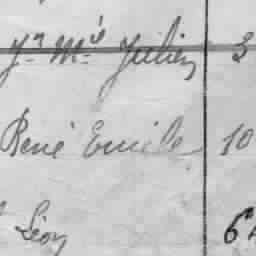 Jn Mie Julien 3
René Emile 10
Léon 6